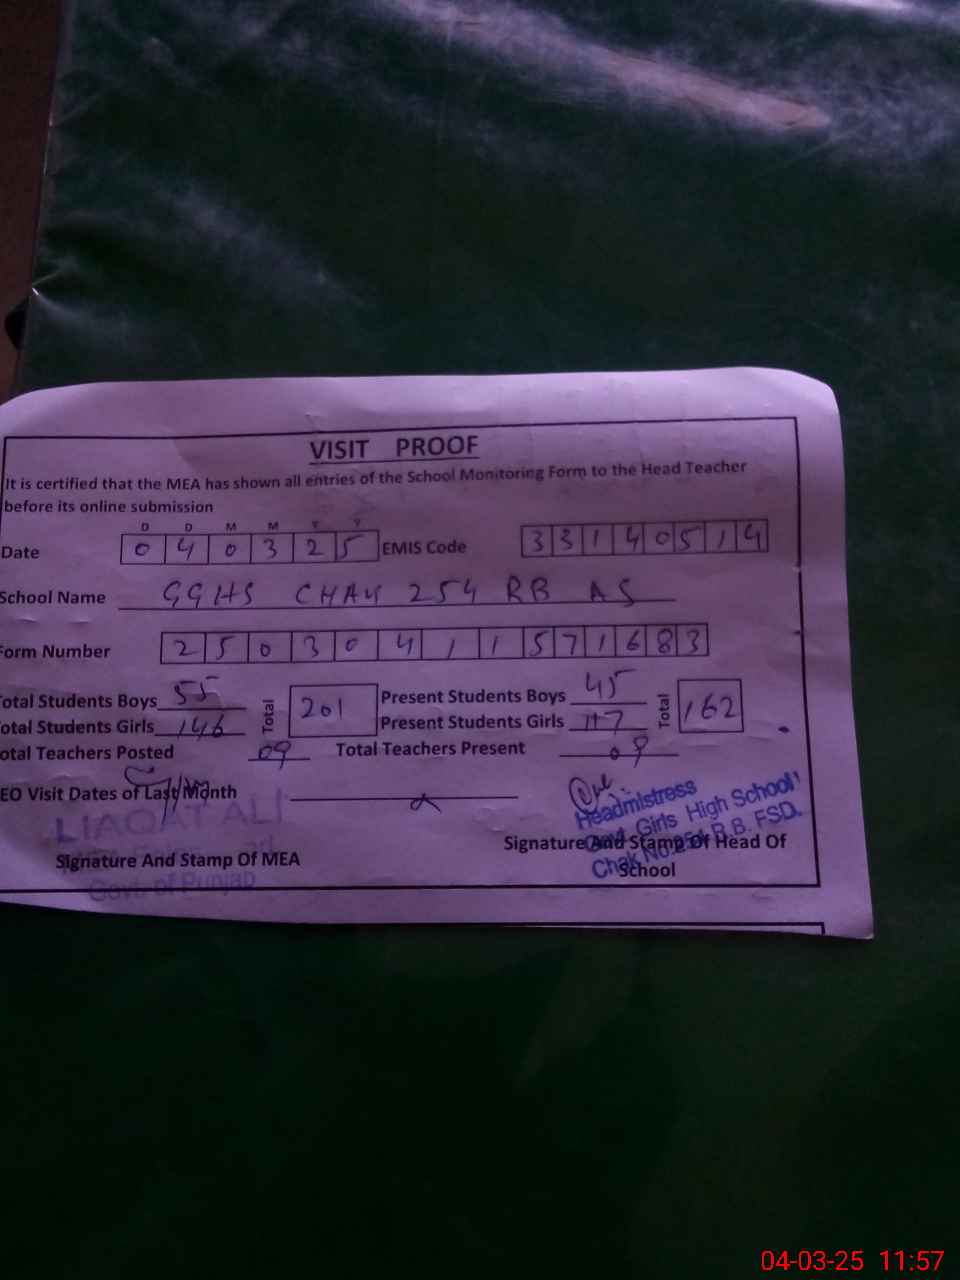 VISIT PROOF
It is certified that the MEA has shown all entries of the School Monitoring Form to the Head Teacher
before its online submission
D D M M Y Y
Date 0 4 0 3 2 5 EMIS Code 3 3 1 4 0 5 1 4
School Name GGHS CHAK 254 RB AS
Form Number 2 5 0 3 0 4 1 1 5 7 1 6 8 3
otal Students Boys 55 Total 201 Present Students Boys 45 Total 162
otal Students Girls 146 Present Students Girls 117
otal Teachers Posted 09 Total Teachers Present 09
EO Visit Dates of Last Month
LIAQAT ALI
Govt. of Punjab
Signature And Stamp Of MEA
Headmistress
Govt. Girls High School
Chak No.254 R.B. FSD.
Signature And Stamp Of Head Of
School
04-03-25 11:57